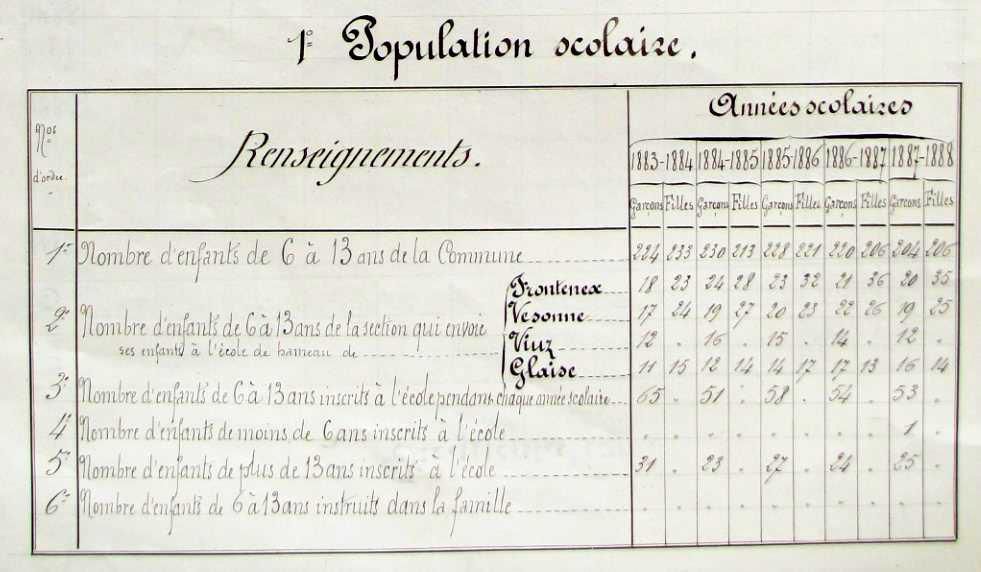 1° Population scolaire.
Nos d'ordre
Renseignements.
Années scolaires
1883-1884 1884-1885 1885-1886 1886-1887 1887-1888
Garçons Filles Garçons Filles Garçons Filles Garçons Filles Garçons Filles
1° Nombre d'enfants de 6 à 13 ans de la Commune 224 233 230 213 228 221 220 206 204 206
Frontenex 18 23 24 28 23 32 21 36 20 35
2° Nombre d'enfants de 6 à 13 ans de la section qui envoie Vesonne 17 24 19 27 20 23 22 26 19 25
ses enfants à l'école de hameau de Viuz 12 . 16 . 15 . 14 . 12 .
Glaise 11 15 12 14 14 17 17 13 16 14
3° Nombre d'enfants de 6 à 13 ans inscrits à l'école pendans chaque année scolaire 65 . 51 . 58 . 54 . 53 .
4° Nombre d'enfants de moins de 6 ans inscrits à l'école . . . . . . . . 1 .
5° Nombre d'enfants de plus de 13 ans inscrits à l'école 31 . 23 . 27 . 24 . 25 .
6° Nombre d'enfants de 6 à 13 ans instruits dans la famille . . . . . . . . . .